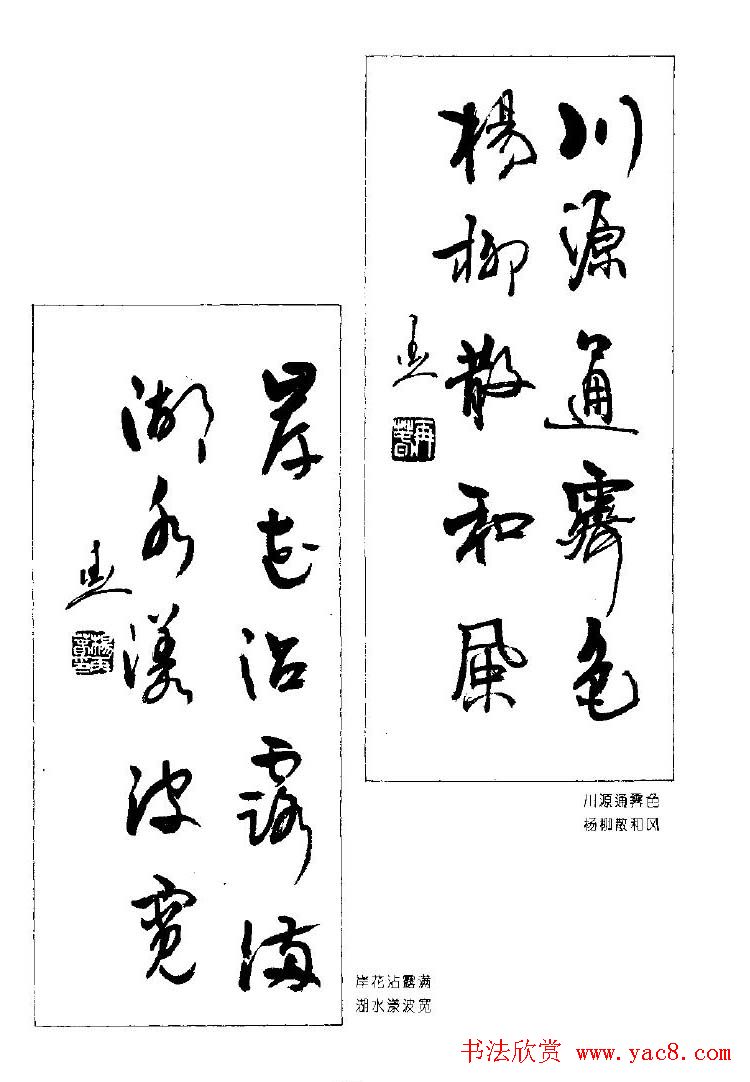 川源通霽色
楊柳散和風
川源通霁色
杨柳散和风
岸花沾露滿
湖水漾波寬
岸花沾露满
湖水漾波宽
书法欣赏 www.yac8.com